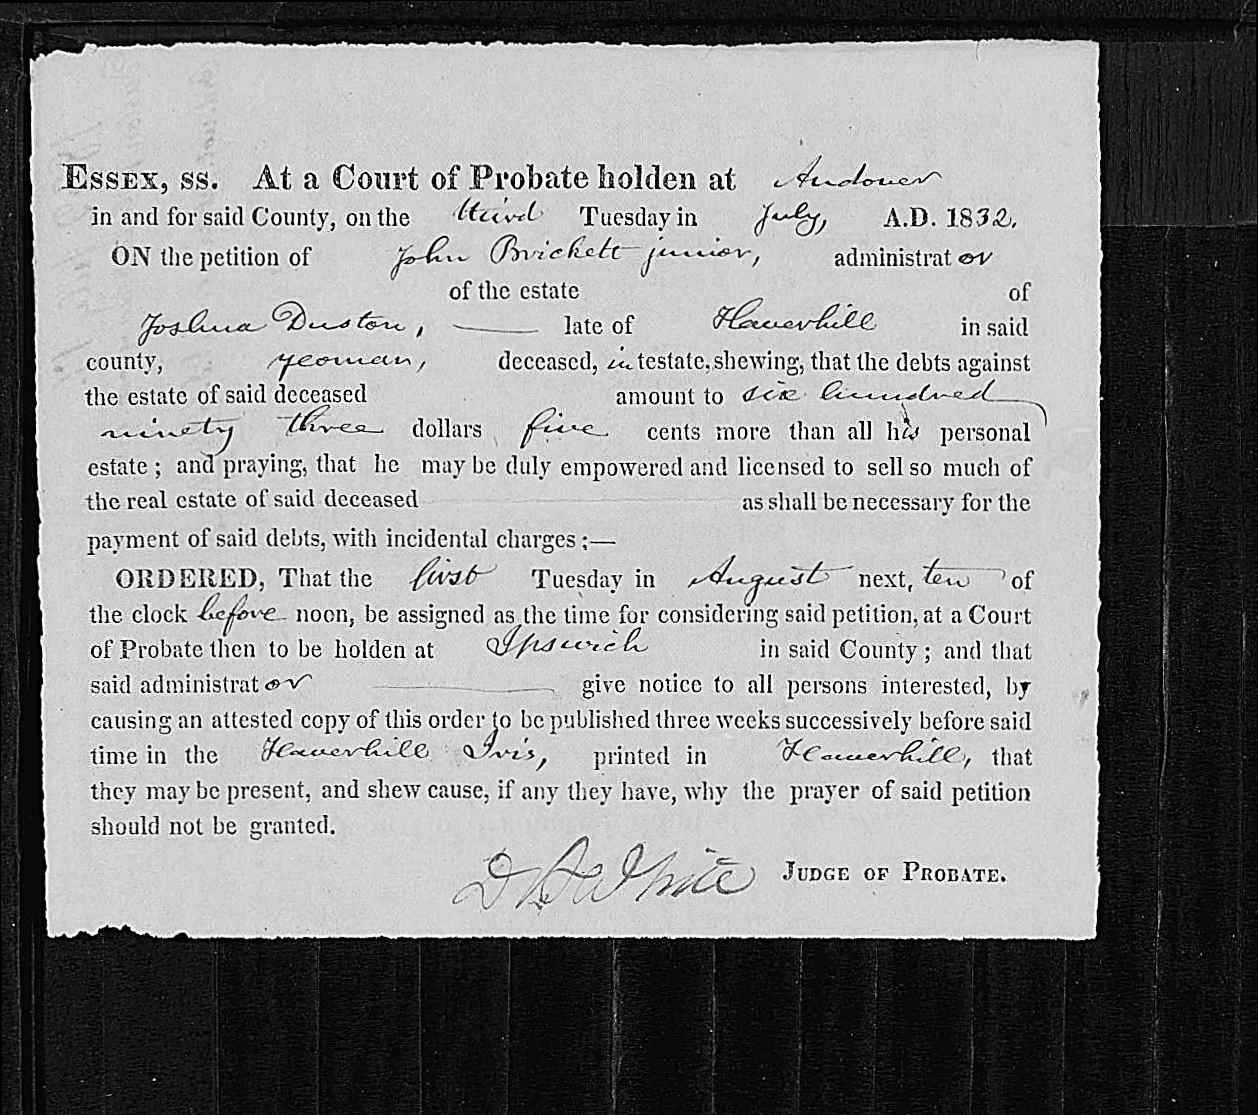 ESSEX, SS. At a Court of Probate holden at Andover
in and for said County, on the third Tuesday in July, A.D. 1832.
ON the petition of John Brickett junior, administrat or
of the estate of
Joshua Duston, — late of Haverhill in said
county, yeoman, deceased, in testate, shewing, that the debts against
the estate of said deceased amount to six hundred
ninety three dollars five cents more than all his personal
estate; and praying, that he may be duly empowered and licensed to sell so much of
the real estate of said deceased as shall be necessary for the
payment of said debts, with incidental charges;—
ORDERED, That the first Tuesday in August next, ten of
the clock before noon, be assigned as the time for considering said petition, at a Court
of Probate then to be holden at Ipswich in said County; and that
said administrat or give notice to all persons interested, by
causing an attested copy of this order to be published three weeks successively before said
time in the Haverhill Iris, printed in Haverhill, that
they may be present, and shew cause, if any they have, why the prayer of said petition
should not be granted.
D A White JUDGE OF PROBATE.